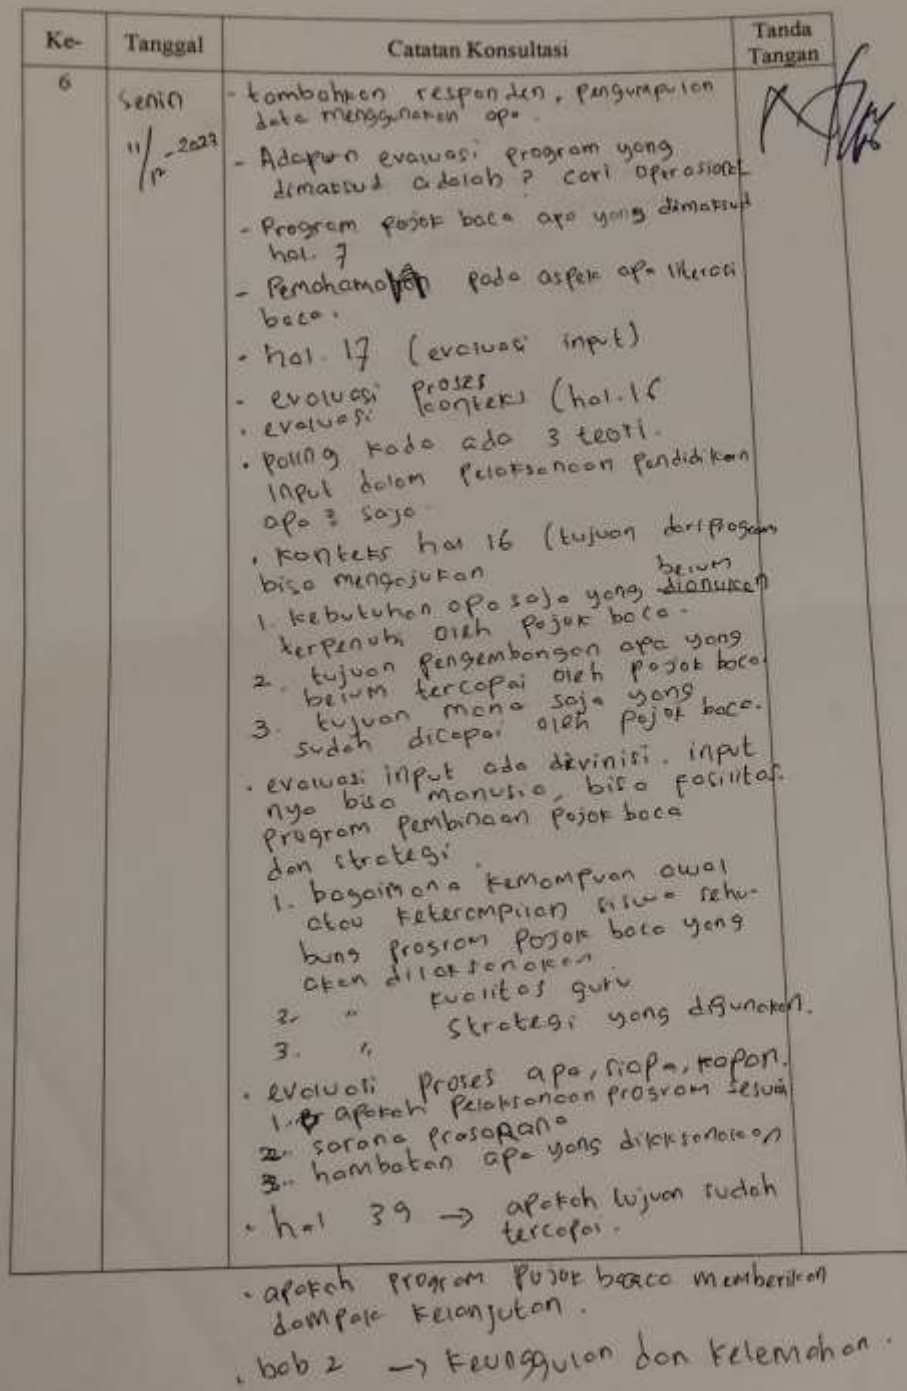 Ke- Tanggal Catatan Konsultasi Tanda Tangan
6 Senin 11/12-2023
- tambahkan responden, pengumpulan
data menggunakan apa.
- Adapun evaluasi program yang
dimaksud adalah? cari operasional
- Program pojok baca apa yang dimaksud
hal. 7
- Pemahaman pada aspek apa literasi
baca.
- hal. 17 (evaluasi input)
- evaluasi proses
. evaluasi konteks (hal. 16
. paling kada ada 3 teori.
input dalam pelaksanaan pendidikan
apa 2 sajo
. konteks hal 16 (tujuan dari program
bisa mengajukan
1. kebutuhan apa saja yang belum
terpenuhi oleh pojok baca.
2. tujuan pengembangan apa yang
belum tercapai oleh pojok baca.
3. tujuan mana saja yang
sudah dicapai oleh pojok baca.
. evaluasi input ada devinisi. input
nya bisa manusia, bisa fasilitas.
program pembinaan pojok baca
dan strategi.
1. bagaimana kemampuan awal
atau keterampilan siswa sehu-
bung program pojok baca yang
akan dilaksanakan
2. " kualitas guru
3. " strategi yang digunakan.
. evaluasi proses apa, siapa, kapan.
1. apakah pelaksanaan program sesuai
2. sarana prasarana
3. hambatan apa yang dilaksanakan
. hal 39 → apakah tujuan sudah
tercapai.
. apakah program pojok baca memberikan
dampak kelanjutan.
. bab 2 → keunggulan dan kelemahan.